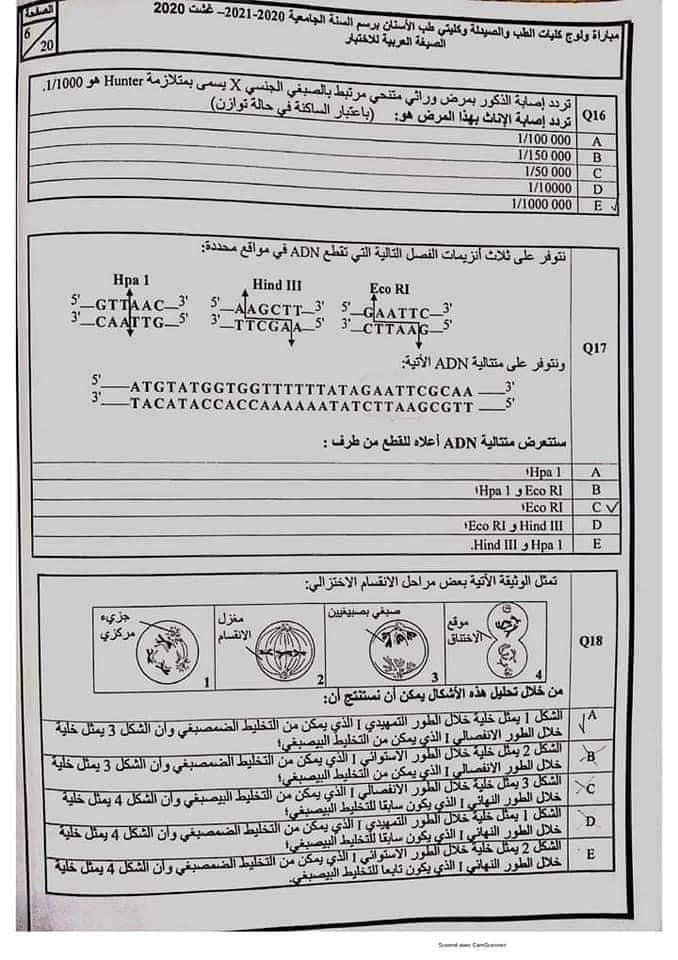 الصفحة
6
20
مباراة ولوج كليات الطب والصيدلة وكليتي طب الأسنان برسم السنة الجامعية 2020-2021– غشت 2020
الصيغة العربية للاختبار
Q16
تردد إصابة الذكور بمرض وراثي متنحي مرتبط بالصبغي الجنسي X يسمى بمتلازمة Hunter هو 1/1000.
تردد إصابة الإناث بهذا المرض هو: (باعتبار الساكنة في حالة توازن)
A 1/100 000
B 1/150 000
C 1/50 000
D 1/10000
E 1/1000 000
Q17
نتوفر على ثلاث أنزيمات الفصل التالية التي تقطع ADN في مواقع محددة:
Hpa 1 Hind III Eco RI
5'—GTTAAC—3' 5'—AAGCTT—3' 5'—GAATTC—3'
3'—CAATTG—5' 3'—TTCGAA—5' 3'—CTTAAG—5'
ونتوفر على متتالية ADN الآتية:
5'——ATGTATGGTGGTTTTTTATAGAATTCGCAA——3'
3'——TACATACCACCAAAAAATATCTTAAGCGTT——5'
ستتعرض متتالية ADN أعلاه للقطع من طرف :
A Hpa 1؛
B Eco RI و Hpa 1؛
C Eco RI؛
D Hind III و Eco RI؛
E Hpa 1 و Hind III.
Q18
تمثل الوثيقة الآتية بعض مراحل الانقسام الاختزالي:
جزيء
مركزي
1
مغزل
الانقسام
2
صبغي بصبيغيين
3
موقع
الاختناق
4
من خلال تحليل هذه الأشكال يمكن أن نستنتج أن:
A الشكل 1 يمثل خلية خلال الطور التمهيدي I الذي يمكن من التخليط الضمصبغي وأن الشكل 3 يمثل خلية
خلال الطور الانفصالي I الذي يمكن من التخليط البيصبغي؛
B الشكل 2 يمثل خلية خلال الطور الاستوائي I الذي يمكن من التخليط الضمصبغي وأن الشكل 3 يمثل خلية
خلال الطور الانفصالي I الذي يمكن من التخليط البيصبغي؛
C الشكل 3 يمثل خلية خلال الطور الانفصالي I الذي يمكن من التخليط البيصبغي وأن الشكل 4 يمثل خلية
خلال الطور النهائي I الذي يكون سابقا للتخليط البيصبغي؛
D الشكل 1 يمثل خلية خلال الطور التمهيدي I الذي يمكن من التخليط الضمصبغي وأن الشكل 4 يمثل خلية
خلال الطور النهائي I الذي يكون سابقا للتخليط البيصبغي؛
E الشكل 2 يمثل خلية خلال الطور الاستوائي I الذي يمكن من التخليط الضمصبغي وأن الشكل 4 يمثل خلية
خلال الطور النهائي I الذي يكون تابعا للتخليط البيصبغي.
Scanned avec CamScanner